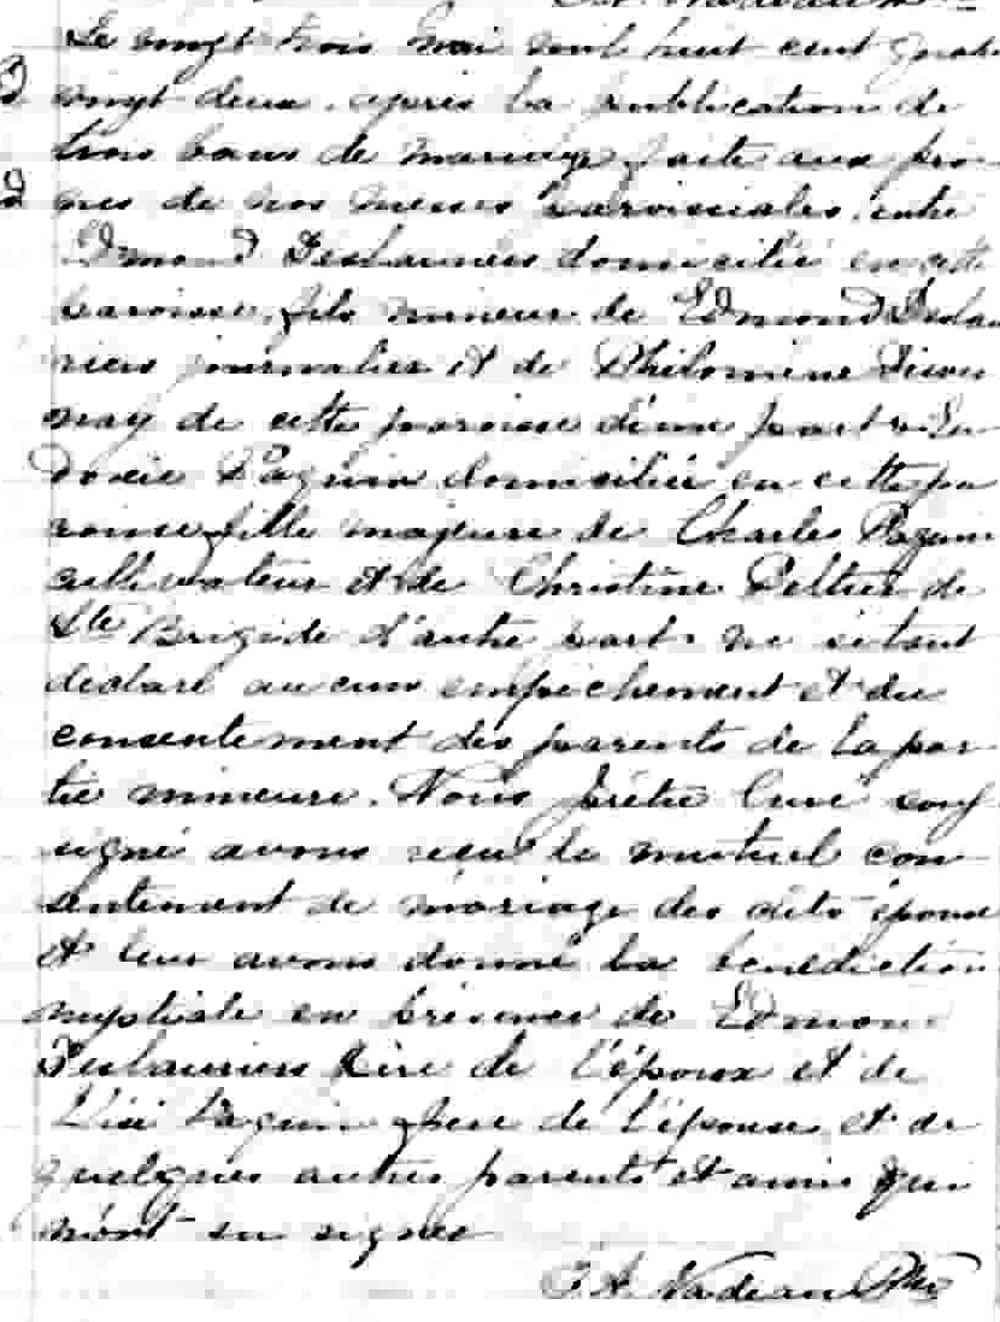 Le vingt trois mai mil huit cent quatre
vingt deux, après la publication de
trois bans de mariage faite aux prô-
nes de nos messes paroissiales, entre
Edmond Deslauriers domicilié en cette
paroisse, fils mineur de Edmond Deslau
riers journalier et de Philomène
nay de cette paroisse d'une part et Eu
doxie Paquin domiciliée en cette pa
roisse fille majeure de Charles Paquin
cultivateur et de Christine Peltier de
Ste Brigide d'autre part. ne s'étant
déclaré aucun empêchement et du
consentement des parents de la par
tie mineure. Nous prêtre curé sous
signé avons reçu le mutuel con
sentement de mariage des dits époux
et leur avons donné la bénédiction
nuptiale en présence de Edmond
Deslauriers père de l'époux et de
Paquin frère de l'épouse, et de
quelques autres parents et amis qui
n'ont su signer
J. A. Nadeau Ptre